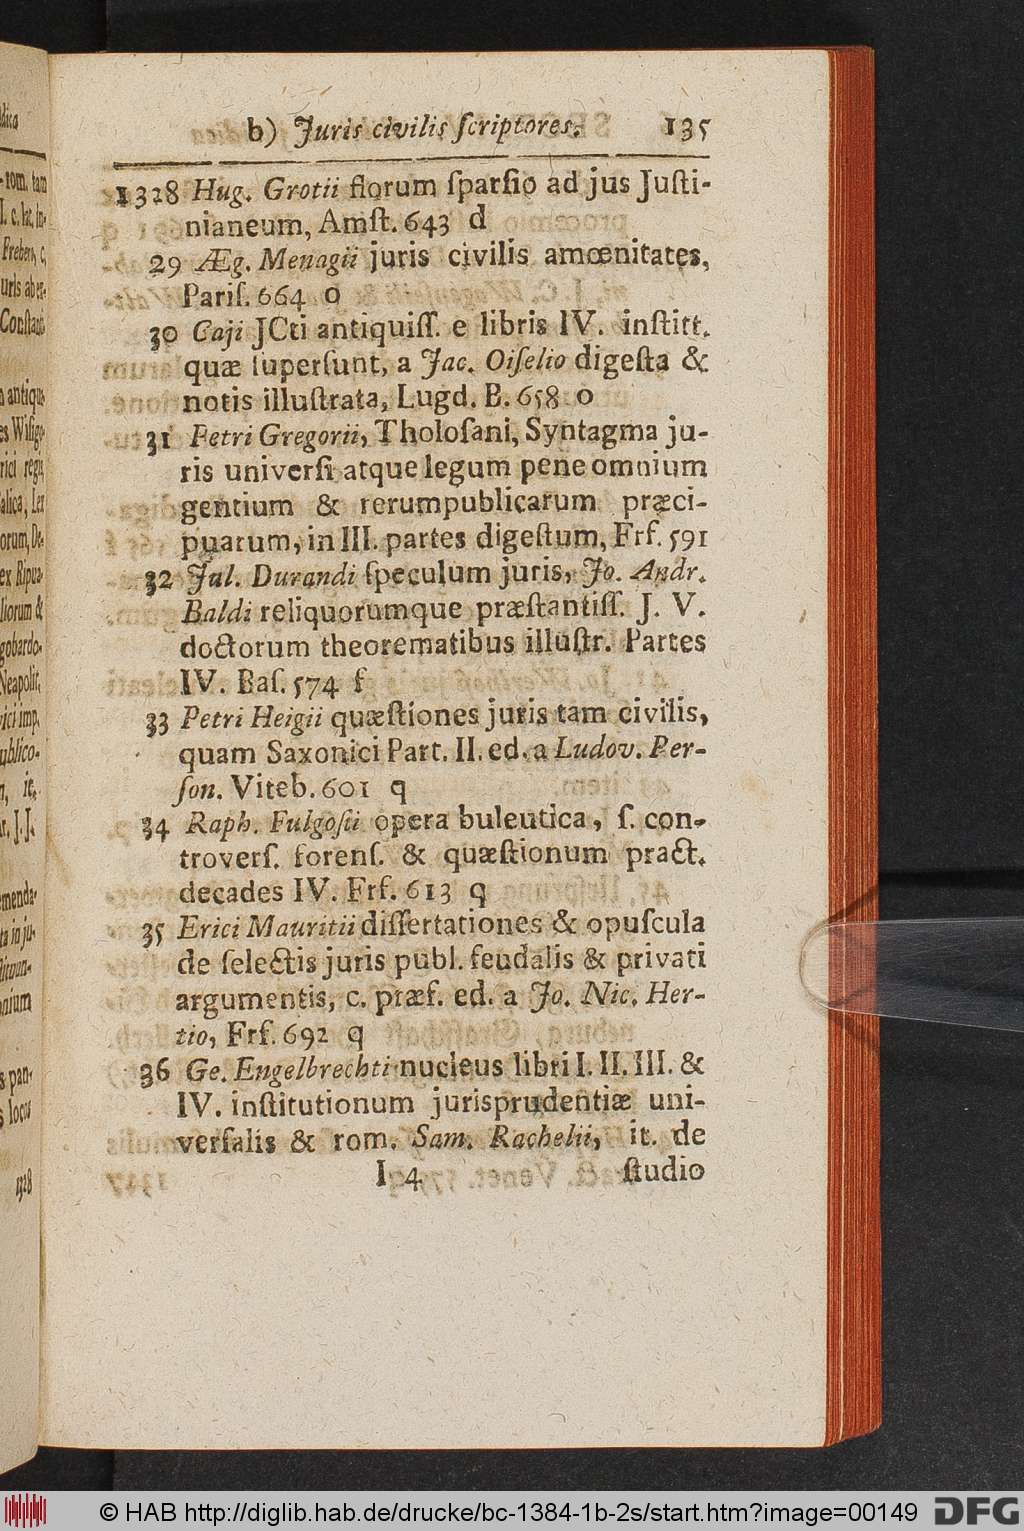 b) Juris civilis ſcriptores. 135
1328 Hug. Grotii florum ſparſio ad jus Juſti-
nianeum, Amſt. 643 d
29 Æg. Menagii juris civilis amœnitates,
Pariſ. 664 o
30 Caji JCti antiquiſſ. e libris IV. inſtitt.
quæ ſuperſunt, a Jac. Oiſelio digeſta &
notis illuſtrata, Lugd. B. 658 o
31 Petri Gregorii, Tholoſani, Syntagma ju-
ris univerſi atque legum pene omnium
gentium & rerumpublicarum præci-
puarum, in III. partes digeſtum, Frf. 591
32 Jul. Durandi ſpeculum juris, Jo. Andr.
Baldi reliquorumque præſtantiſſ. J. V.
doctorum theorematibus illuſtr. Partes
IV. Baſ. 574 f
33 Petri Heigii quæſtiones juris tam civilis,
quam Saxonici Part. II. ed. a Ludov. Per-
ſon. Viteb. 601 q
34 Raph. Fulgoſii opera buleutica, ſ. con-
troverſ. forenſ. & quæſtionum pract.
decades IV. Frf. 613 q
35 Erici Mauritii diſſertationes & opuſcula
de ſelectis juris publ. feudalis & privati
argumentis, c. præf. ed. a Jo. Nic. Her-
tio, Frf. 692 q
36 Ge. Engelbrechti nucleus libri I. II. III. &
IV. inſtitutionum jurisprudentiæ uni-
verſalis & rom. Sam. Rachelii, it. de
I 4 ſtudio
© HAB http://diglib.hab.de/drucke/bc-1384-1b-2s/start.htm?image=00149 DFG